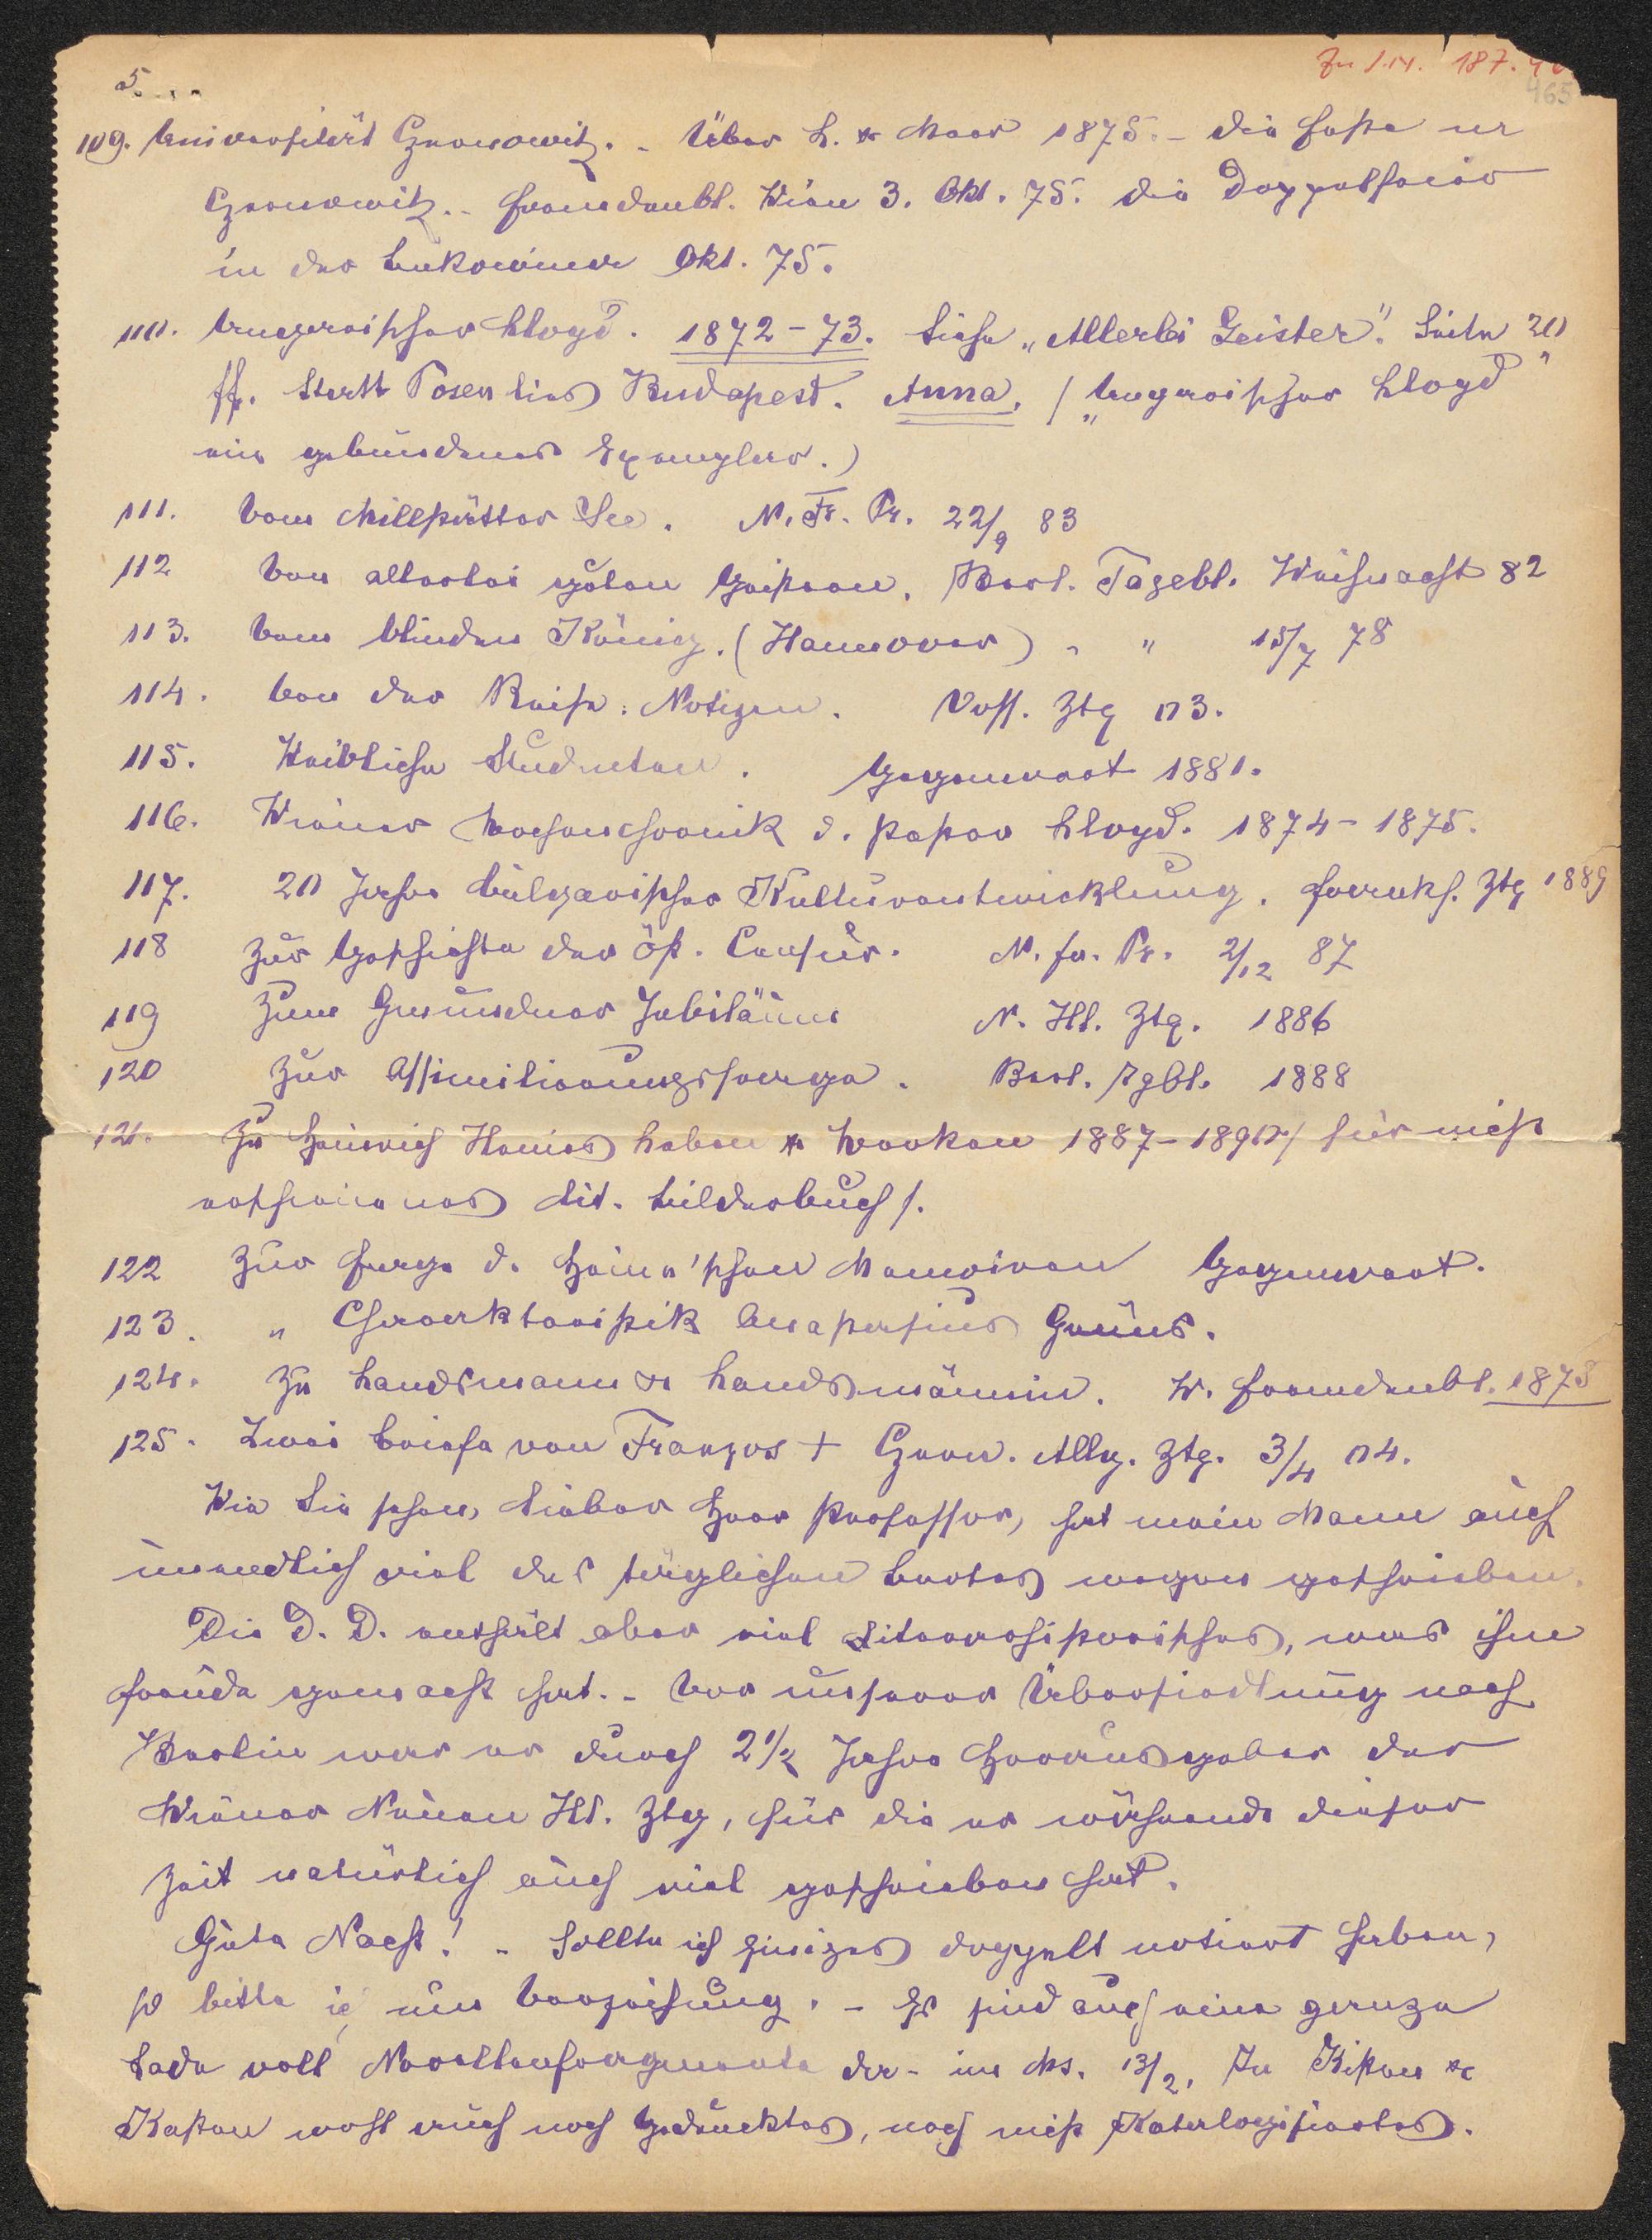 5.
Zu I.N. 187.4
465
109. Universität Czernowitz. - Über L. & Meer 1875. - Die Feste
Czernowitz. - Fremdenbl. Wien 3. Okt. 75. Die Doppelfeier
in der Bukowina Okt. 75.
110. Ungarischer Lloyd. 1872-73. Siehe „Allerlei Geister". Seite 20
ff. Statt Posen lies Budapest. Anna. / „Ungarischer Lloyd"
ein gebundenes Exemplar.)
111. Vom Millstätter See. N. Fr. Pr. 22/9 83
112 Von allerlei guten Geistern. Berl. Tagebl. Weihnacht 82
113. Vom blinden König. (Hannover) " " 15/7 78
114. Von der Reise: Notizen. Voss. Ztg 03.
115. Weibliche Studenten. Gegenwart 1881.
116. Wiener Wochenchronik d. Pester Lloyd. 1874-1875.
117. 20 Jahre bulgarischer Kulturentwicklung. Frankf. Ztg 1889
118 Zur Geschichte der öst. Censur. N. fr. Pr. 2/12 87
119 Zum Gmundner Jubiläum N. Ill. Ztg. 1886
120 Zur Assimilierungsfrage. Berl. Tgbl. 1888
121. Zu Heinrich Heines Leben & Werken 1887-1890 / für nicht
erschienenes Lit. Bilderbuch /.
122 Zur Frage d. Heine'schen Memoiren Gegenwart.
123. " Charakteristik Anastasius Grüns.
124. Zu Landsmann & Landsmännin. W. Fremdenbl. 1875
125. Zwei Briefe von Franzos + Czern. Allg. Ztg. 3/4 04.
Wie Sie sehen, lieber Herr Professor, hat mein Mann auch
unendlich viel des täglichen Brotes wegen geschrieben.
Die D. D. enthält aber viel Literarhistorisches, was ihm
Freude gemacht hat. - Vor unserer Übersiedlung nach
Berlin war er durch 2 1/2 Jahre Herausgeber der
Wiener Neuen Ill. Ztg, für die er während dieser
Zeit natürlich auch viel geschrieben hat.
Gute Nacht! - Sollte ich Einiges doppelt notiert haben,
so bitte ich um Verzeihung. - Es sind auch eine ganze
Lade voll Novellenfragmente da - im Ms. 13/2. In Kisten &
Kasten wohl auch noch Gedrucktes, noch nicht Katalogisiertes.